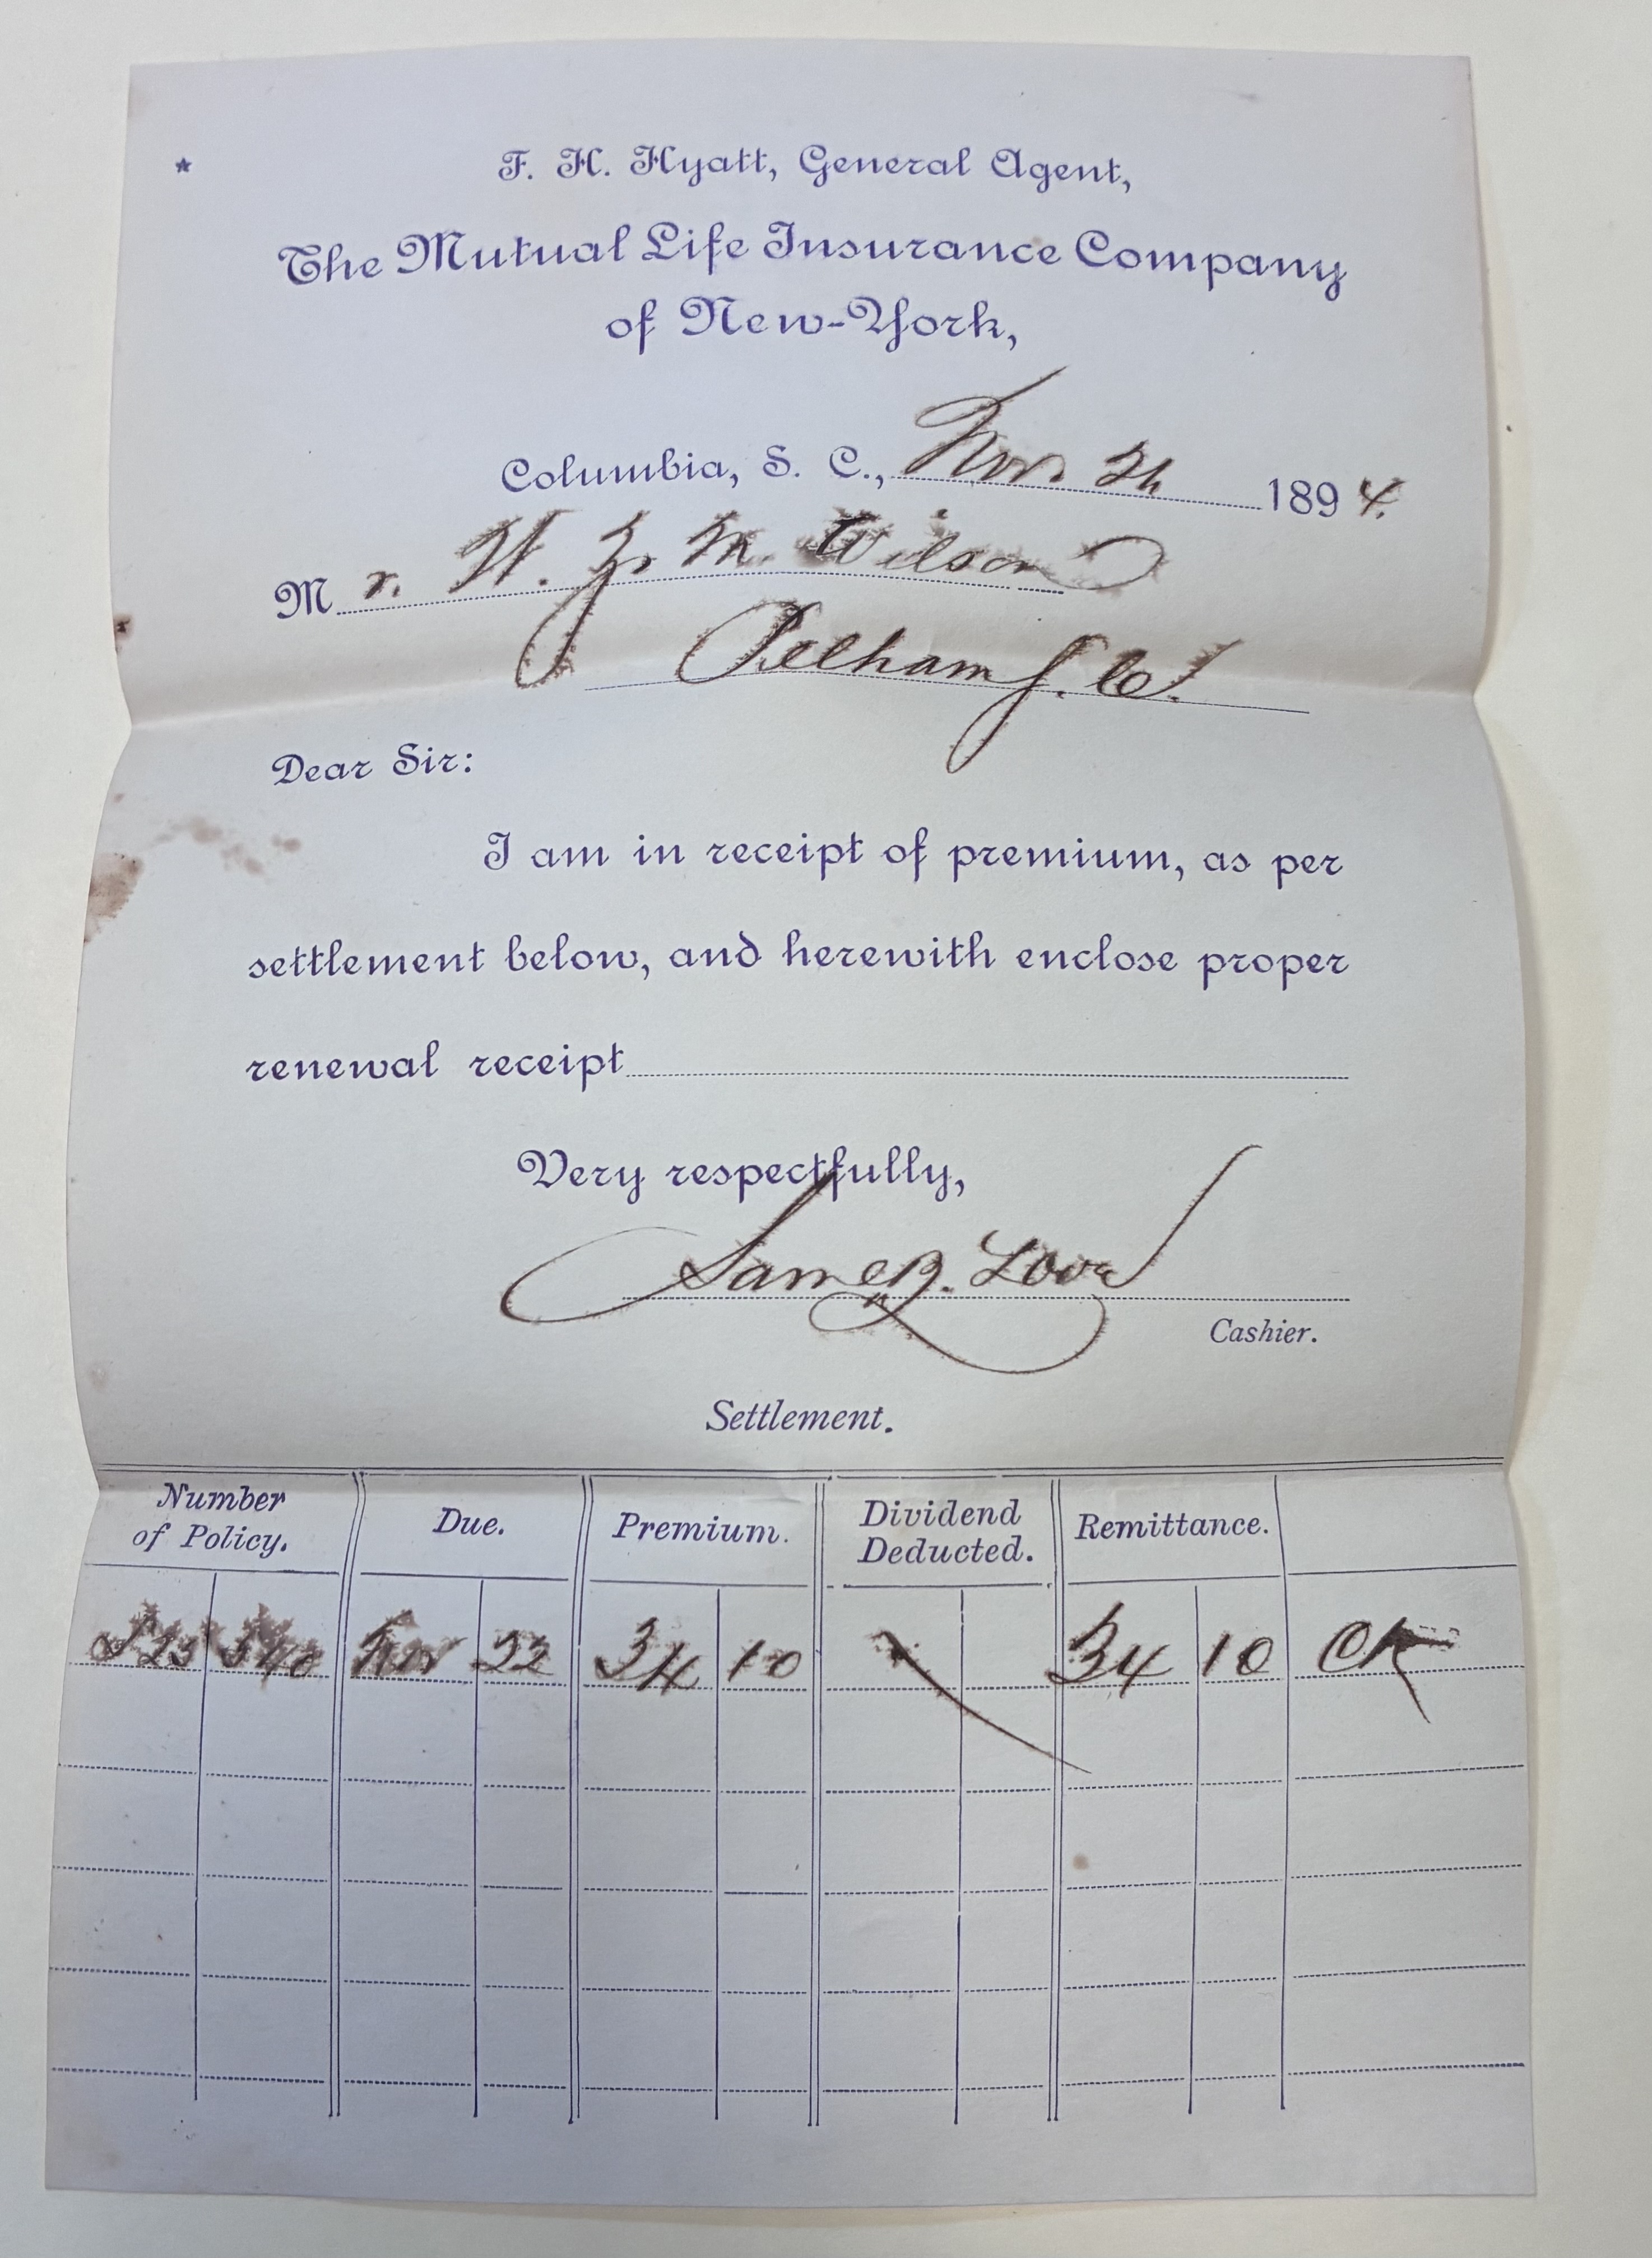 F. H. Hyatt, General Agent,
The Mutual Life Insurance Company
of New-York,
Columbia, S. C., Nov 24 1894.
Mr. W. M. Wilson
Pelham S. C.
Dear Sir:
I am in receipt of premium, as per
settlement below, and herewith enclose proper
renewal receipt
Very respectfully,
Cashier.
Settlement.
Number of Policy. Due. Premium. Dividend Deducted. Remittance.
Nov 22 34 10 34 10 CK